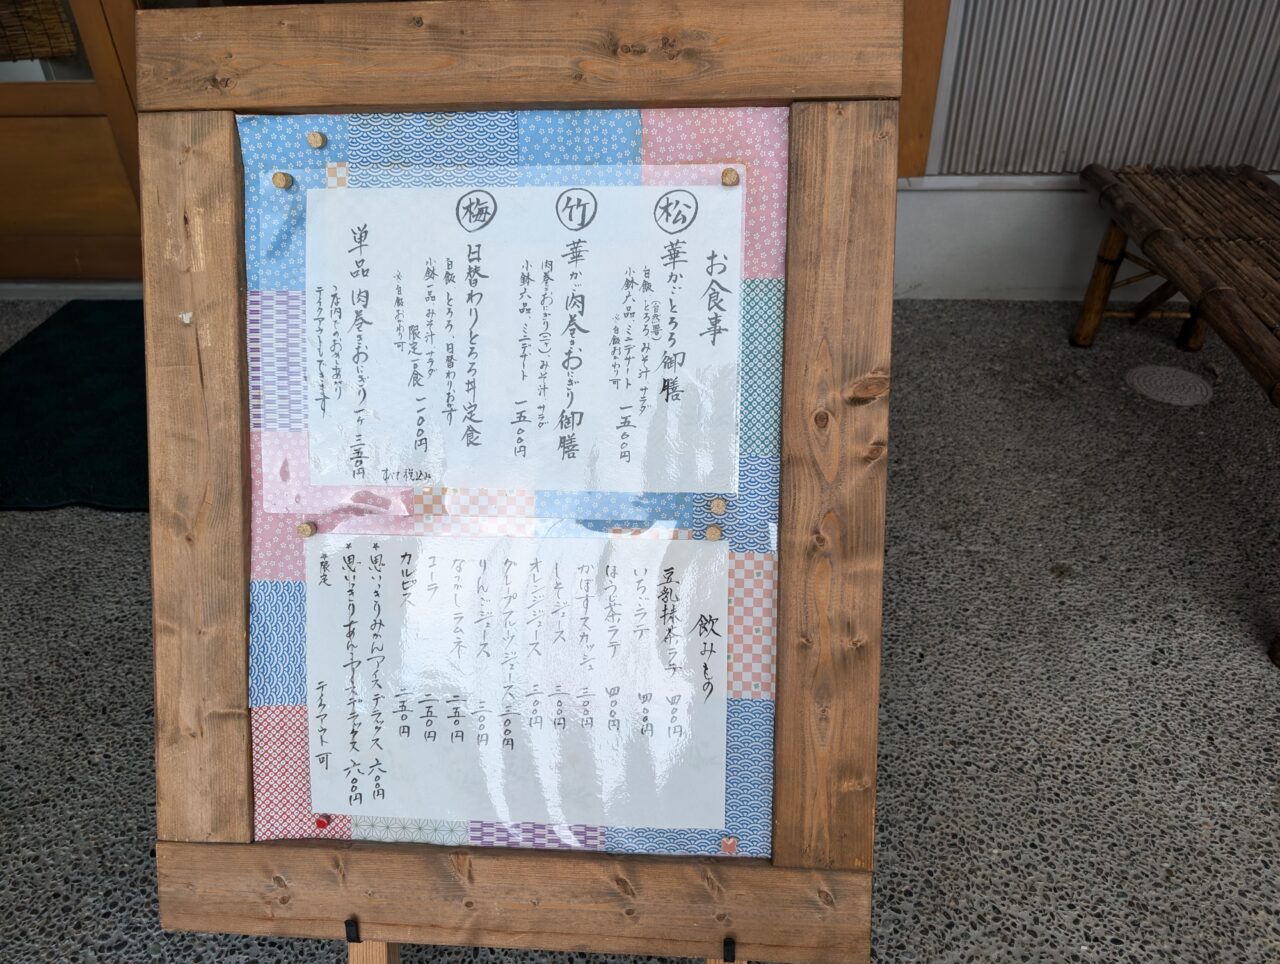 お食事
松 華かごとろろ御膳
白飯(自然薯)とろろ、みそ汁 サラダ
小鉢六品 ミニデザート 一五〇〇円
※白飯おかわり可
竹 華かご肉巻きおにぎり御膳
肉巻きおにぎり(二ヶ)、みそ汁 サラダ
小鉢六品 ミニデザート 一五〇〇円
梅 日替わりとろろ丼定食
白飯 とろろ、日替わりおかず
小鉢一品 みそ汁 サラダ 一一〇〇円
※白飯おかわり可
単品 肉巻きおにぎり 一ヶ 三五〇円
テイクアウトもできます
税込み
飲みもの
豆乳抹茶ラテ 四〇〇円
いちごラテ 四〇〇円
ほうじ茶ラテ 四〇〇円
かぼすスカッシュ 三〇〇円
しそジュース 三〇〇円
オレンジジュース 三〇〇円
グレープフルーツジュース 三〇〇円
りんごジュース 三〇〇円
なつかしラムネ 二五〇円
コーラ 二五〇円
カルピス 二五〇円
*思いっきりみかんアイスデラックス 六〇〇円
*思いっきりあんアイスデラックス 六〇〇円
*限定 テイクアウト可